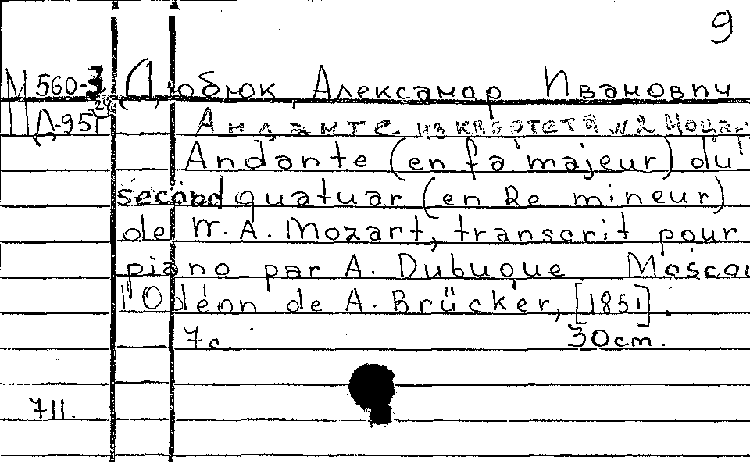 9
М 560-3 Дюбюк, Александр Иванович
Д-95
Анданте из квартета №2 Моцар
Andante (en fa majeur) du
second quatuar (en Re mineur)
de W. A. Mozart, transcrit pour
piano par A. Dubuque Moscou
l'Odéon de A. Brücker, [1851].
7с. 30cm.
711.